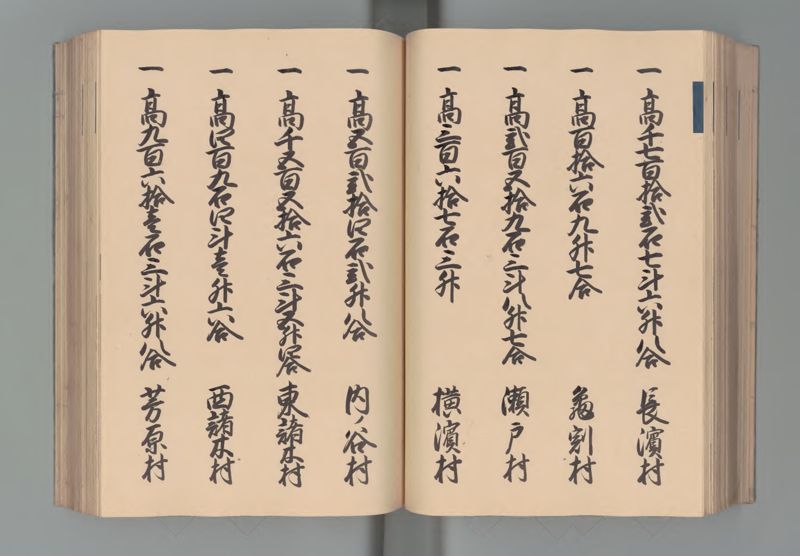 一 高千七百拾弐石七斗六升八合 長濱村
一 高百拾六石九升七合 亀割村
一 高弐百五拾九石三斗八升七合 瀬戸村
一 高三百六拾七石三升 横濱村
一 高五百弐拾四石弐升八合 内ノ谷村
一 高千五百五拾六石三斗五升四合 東諸木村
一 高四百九石四斗壱升六合 西諸木村
一 高九百六拾壱石三斗六升八合 芳原村